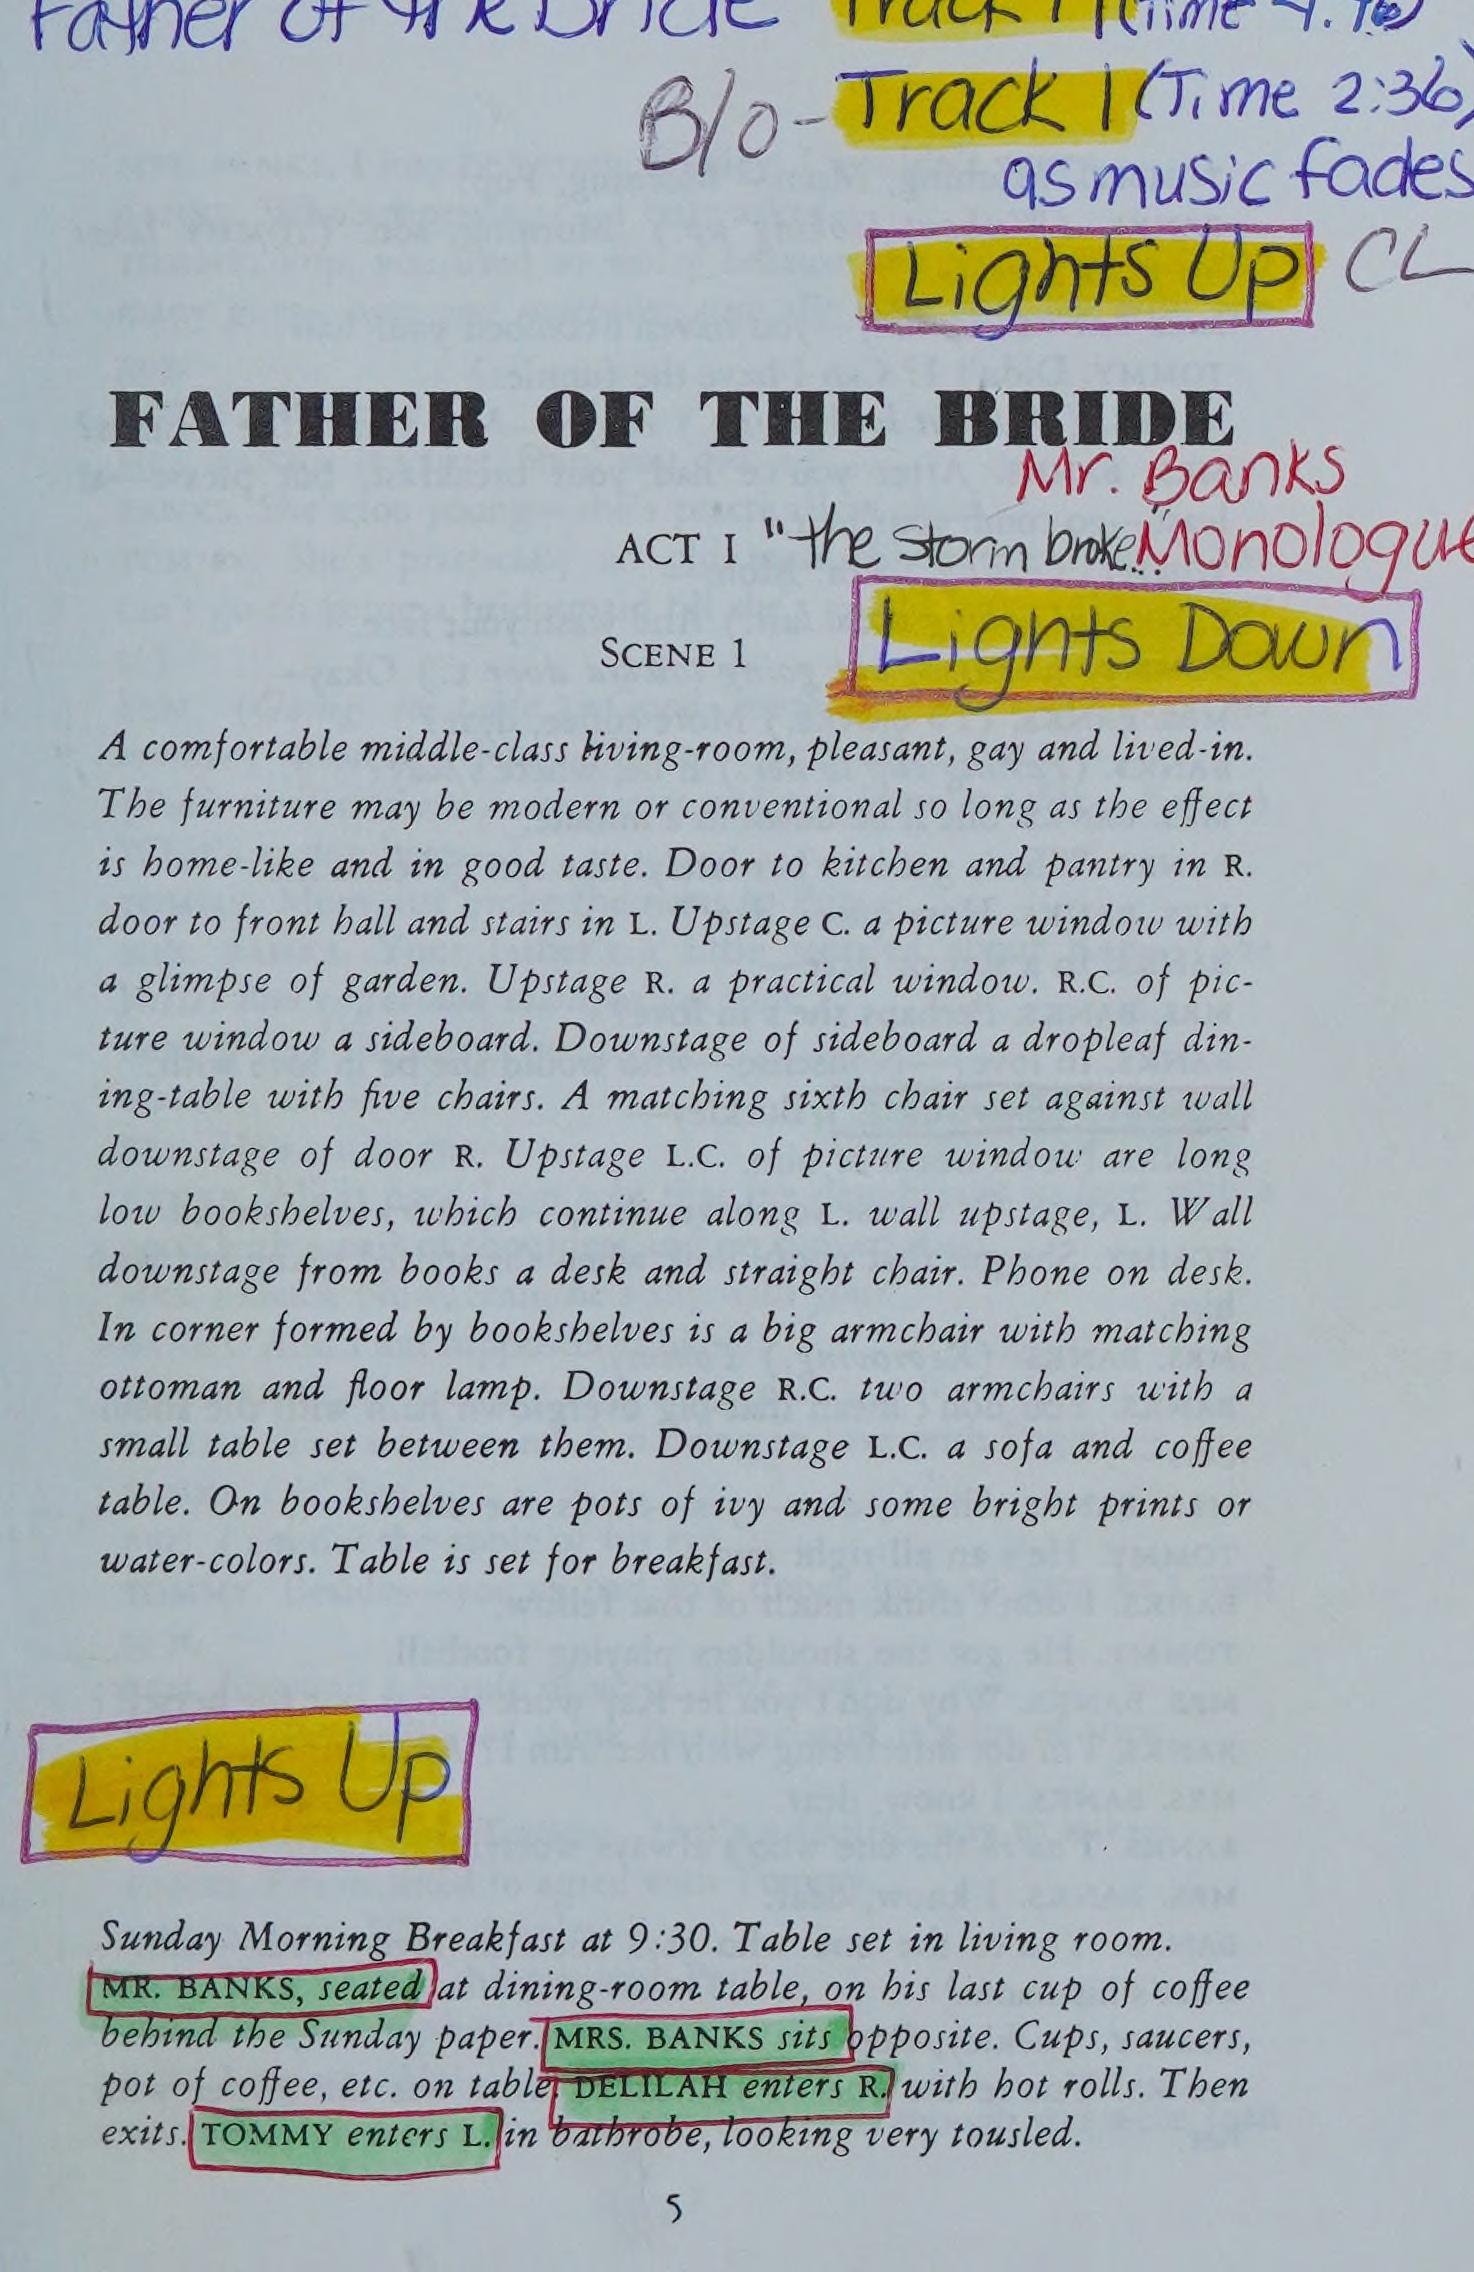 Father of the Bride Track 1 (Time
B/O - Track 1 (Time 2:36)
as music fades
Lights Up CL
FATHER OF THE BRIDE
Mr. Banks
ACT I "the storm broke..." Monologue
SCENE 1 Lights Down
A comfortable middle-class living-room, pleasant, gay and lived-in.
The furniture may be modern or conventional so long as the effect
is home-like and in good taste. Door to kitchen and pantry in R.
door to front hall and stairs in L. Upstage C. a picture window with
a glimpse of garden. Upstage R. a practical window. R.C. of pic-
ture window a sideboard. Downstage of sideboard a dropleaf din-
ing-table with five chairs. A matching sixth chair set against wall
downstage of door R. Upstage L.C. of picture window are long
low bookshelves, which continue along L. wall upstage, L. Wall
downstage from books a desk and straight chair. Phone on desk.
In corner formed by bookshelves is a big armchair with matching
ottoman and floor lamp. Downstage R.C. two armchairs with a
small table set between them. Downstage L.C. a sofa and coffee
table. On bookshelves are pots of ivy and some bright prints or
water-colors. Table is set for breakfast.
Lights Up
Sunday Morning Breakfast at 9:30. Table set in living room.
MR. BANKS, seated at dining-room table, on his last cup of coffee
behind the Sunday paper. MRS. BANKS sits opposite. Cups, saucers,
pot of coffee, etc. on table. DELILAH enters R. with hot rolls. Then
exits. TOMMY enters L. in bathrobe, looking very tousled.
5